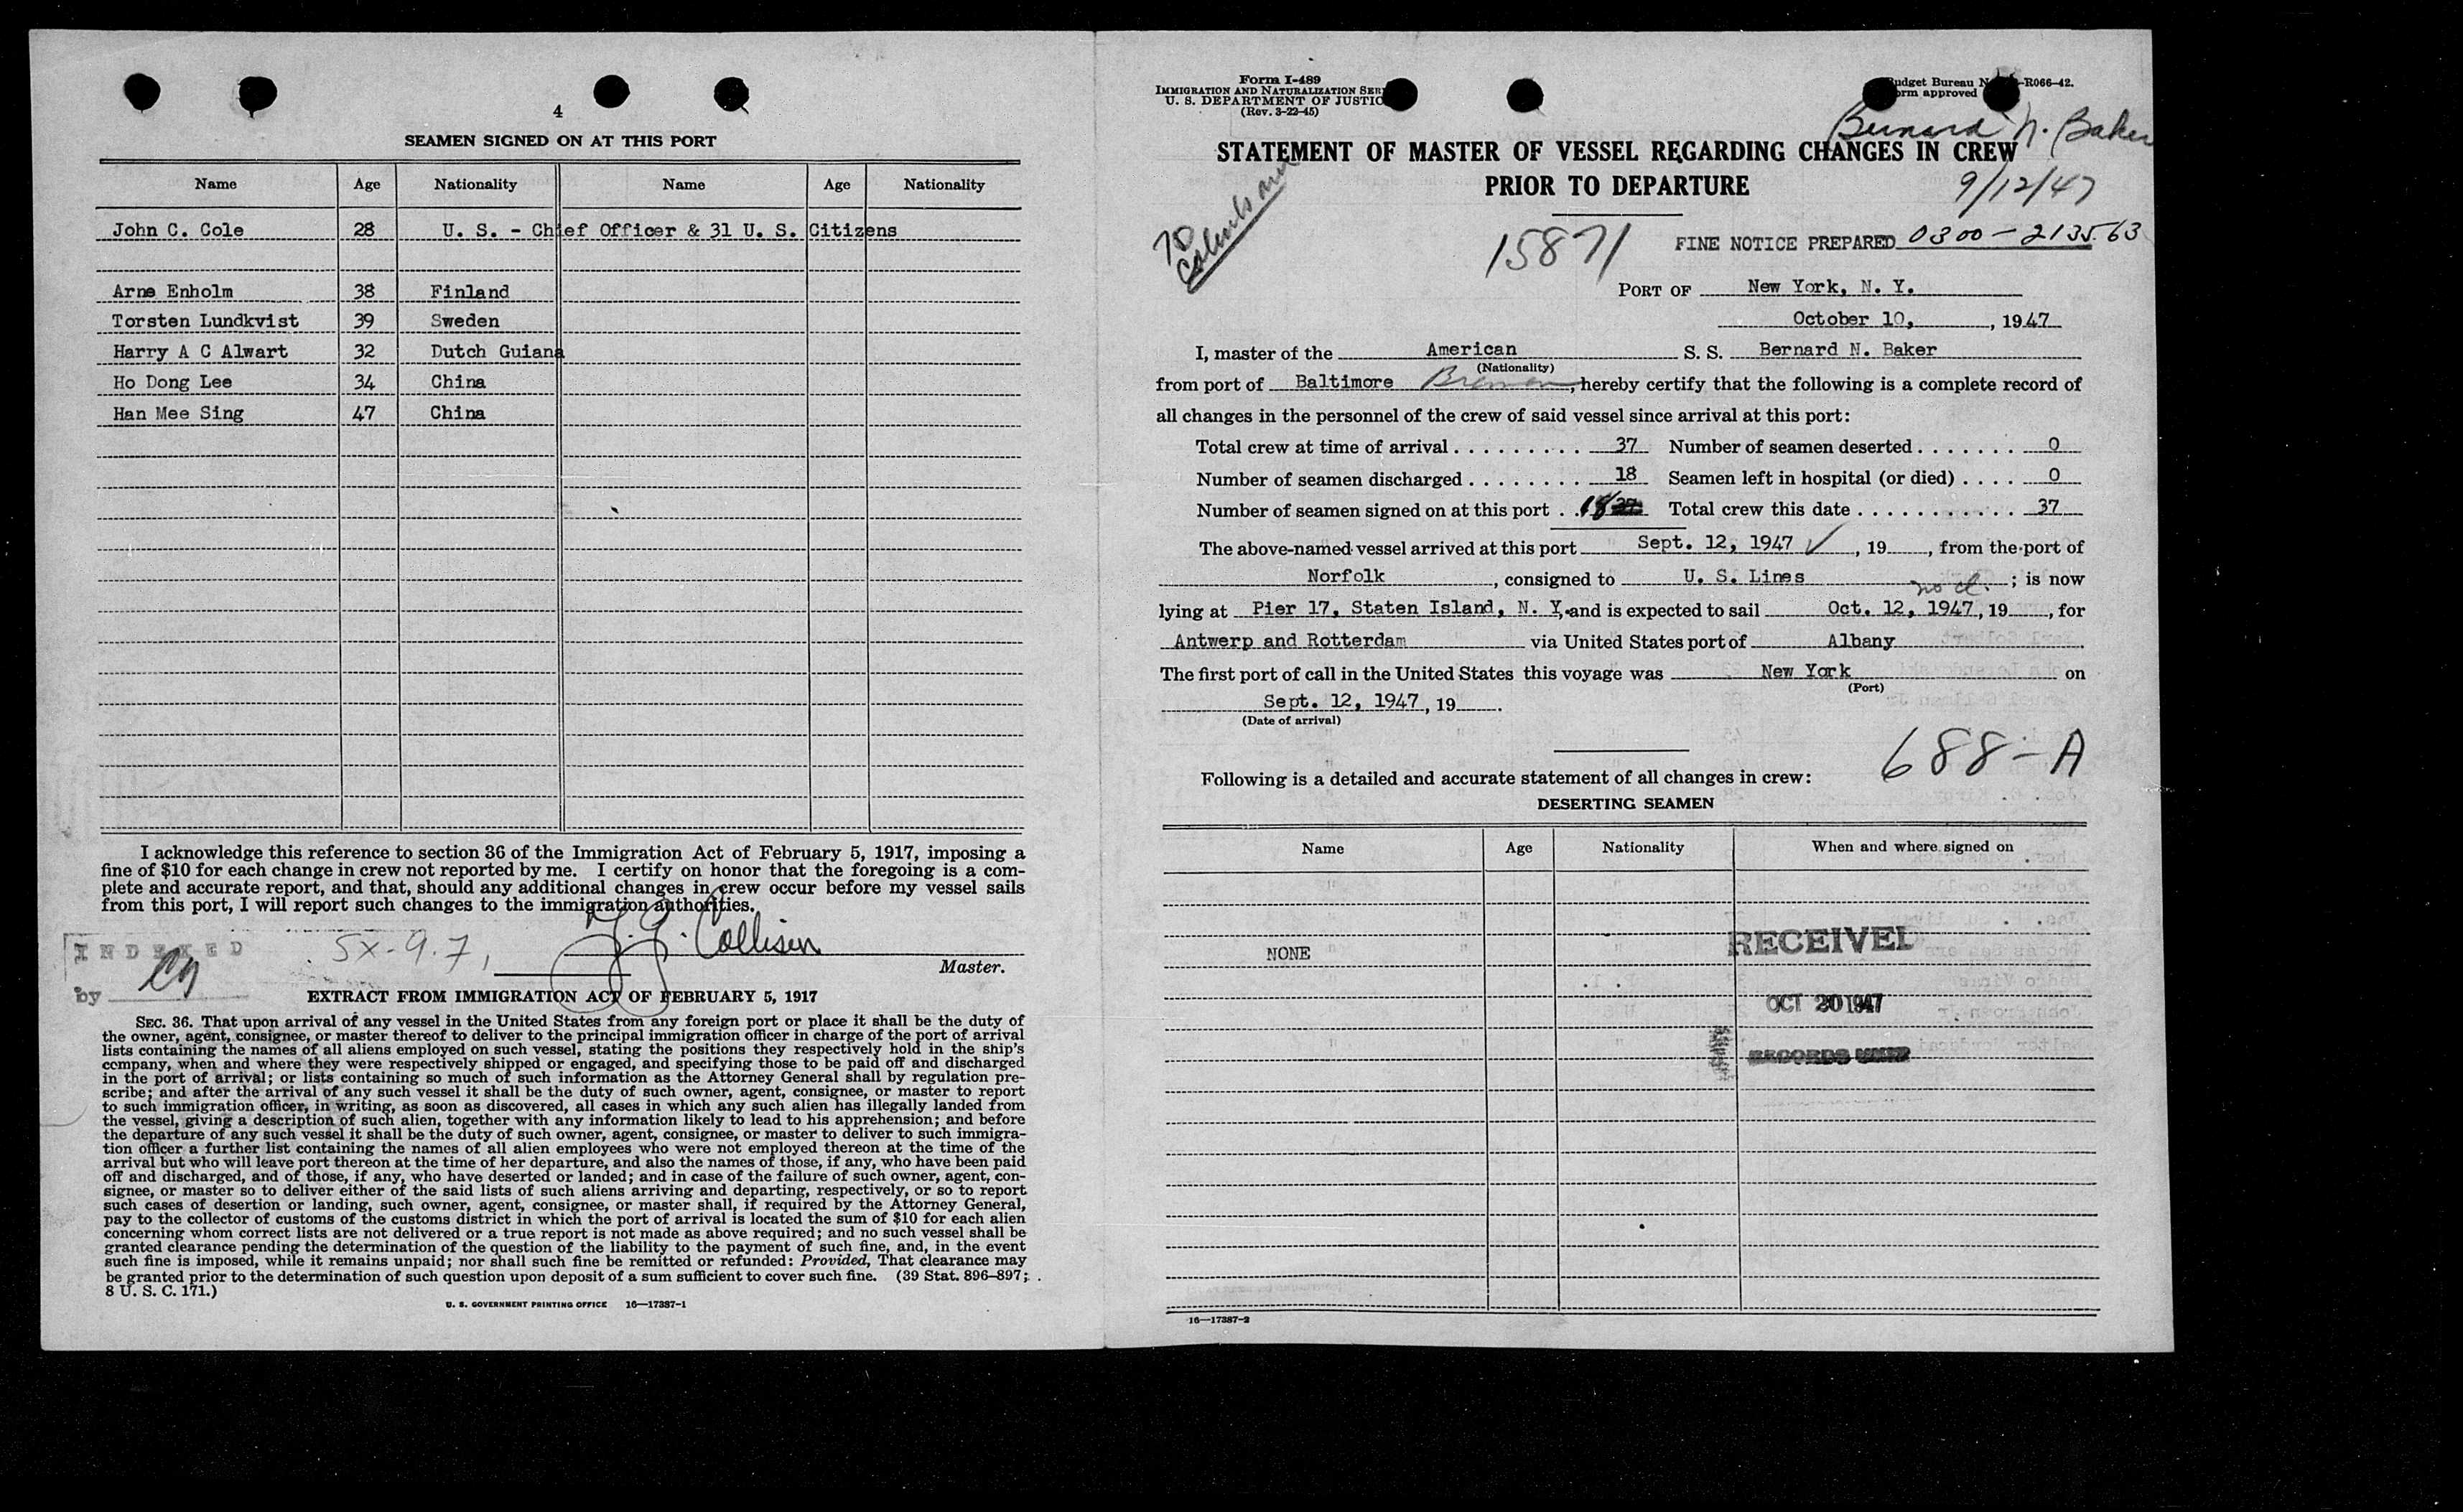 4
SEAMEN SIGNED ON AT THIS PORT
Name Age Nationality Name Age Nationality
John C. Cole 28 U. S. - Chief Officer & 31 U. S. Citizens
Arne Enholm 38 Finland
Torsten Lundkvist 39 Sweden
Harry A C Alwart 32 Dutch Guiana
Ho Dong Lee 34 China
Han Mee Sing 47 China
I acknowledge this reference to section 36 of the Immigration Act of February 5, 1917, imposing a
fine of $10 for each change in crew not reported by me. I certify on honor that the foregoing is a com-
plete and accurate report, and that, should any additional changes in crew occur before my vessel sails
from this port, I will report such changes to the immigration authorities.
INDEXED
by
5x-9.7,
Collisen
Master.
EXTRACT FROM IMMIGRATION ACT OF FEBRUARY 5, 1917
SEC. 36. That upon arrival of any vessel in the United States from any foreign port or place it shall be the duty of
the owner, agent, consignee, or master thereof to deliver to the principal immigration officer in charge of the port of arrival
lists containing the names of all aliens employed on such vessel, stating the positions they respectively hold in the ship's
company, when and where they were respectively shipped or engaged, and specifying those to be paid off and discharged
in the port of arrival; or lists containing so much of such information as the Attorney General shall by regulation pre-
scribe; and after the arrival of any such vessel it shall be the duty of such owner, agent, consignee, or master to report
to such immigration officer, in writing, as soon as discovered, all cases in which any such alien has illegally landed from
the vessel, giving a description of such alien, together with any information likely to lead to his apprehension; and before
the departure of any such vessel it shall be the duty of such owner, agent, consignee, or master to deliver to such immigra-
tion officer a further list containing the names of all alien employees who were not employed thereon at the time of the
arrival but who will leave port thereon at the time of her departure, and also the names of those, if any, who have been paid
off and discharged, and of those, if any, who have deserted or landed; and in case of the failure of such owner, agent, con-
signee, or master so to deliver either of the said lists of such aliens arriving and departing, respectively, or so to report
such cases of desertion or landing, such owner, agent, consignee, or master shall, if required by the Attorney General,
pay to the collector of customs of the customs district in which the port of arrival is located the sum of $10 for each alien
concerning whom correct lists are not delivered or a true report is not made as above required; and no such vessel shall be
granted clearance pending the determination of the question of the liability to the payment of such fine, and, in the event
such fine is imposed, while it remains unpaid; nor shall such fine be remitted or refunded: Provided, That clearance may
be granted prior to the determination of such question upon deposit of a sum sufficient to cover such fine. (39 Stat. 896-897;
8 U. S. C. 171.)
U. S. GOVERNMENT PRINTING OFFICE 16-17387-1
Form I-489
IMMIGRATION AND NATURALIZATION SER
U. S. DEPARTMENT OF JUSTIC
(Rev. 3-22-45)
udget Bureau N -R066-42.
orm approved
Bernard N. Baker
STATEMENT OF MASTER OF VESSEL REGARDING CHANGES IN CREW
PRIOR TO DEPARTURE
9/12/47
15871
FINE NOTICE PREPARED 0300-213563
PORT OF New York, N. Y.
October 10, , 1947
I, master of the American S. S. Bernard N. Baker
(Nationality)
from port of Baltimore Bremen, hereby certify that the following is a complete record of
all changes in the personnel of the crew of said vessel since arrival at this port:
Total crew at time of arrival . . . . . . . . . 37 Number of seamen deserted . . . . . . . 0
Number of seamen discharged . . . . . . . . 18 Seamen left in hospital (or died) . . . . 0
Number of seamen signed on at this port . . 18 Total crew this date . . . . . . . . . . . . 37
The above-named vessel arrived at this port Sept. 12, 1947 ✓, 19 , from the port of
Norfolk , consigned to U. S. Lines ; is now
lying at Pier 17, Staten Island, N. Y. and is expected to sail Oct. 12, 1947, 19 , for
Antwerp and Rotterdam via United States port of Albany
The first port of call in the United States this voyage was New York on
(Port)
Sept. 12, 1947, 19 .
(Date of arrival)
688-A
Following is a detailed and accurate statement of all changes in crew:
DESERTING SEAMEN
Name Age Nationality When and where signed on
NONE
RECEIVED
OCT 20 1947
RECORDS UNIT
16-17387-2